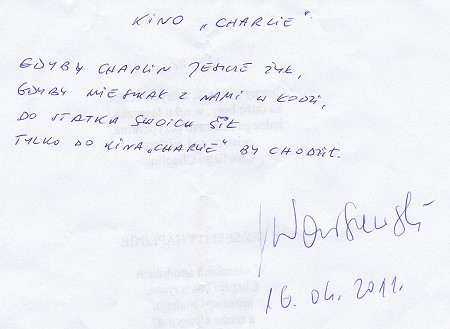 KINO „CHARLIE”
GDYBY CHAPLIN JESZCZE ŻYŁ,
GDYBY MIESZKAŁ Z NAMI W ŁODZI,
DO STATKA SWOICH SIŁ
TYLKO DO KINA „CHARLIE” BY CHODZIŁ.
16.04.2011.